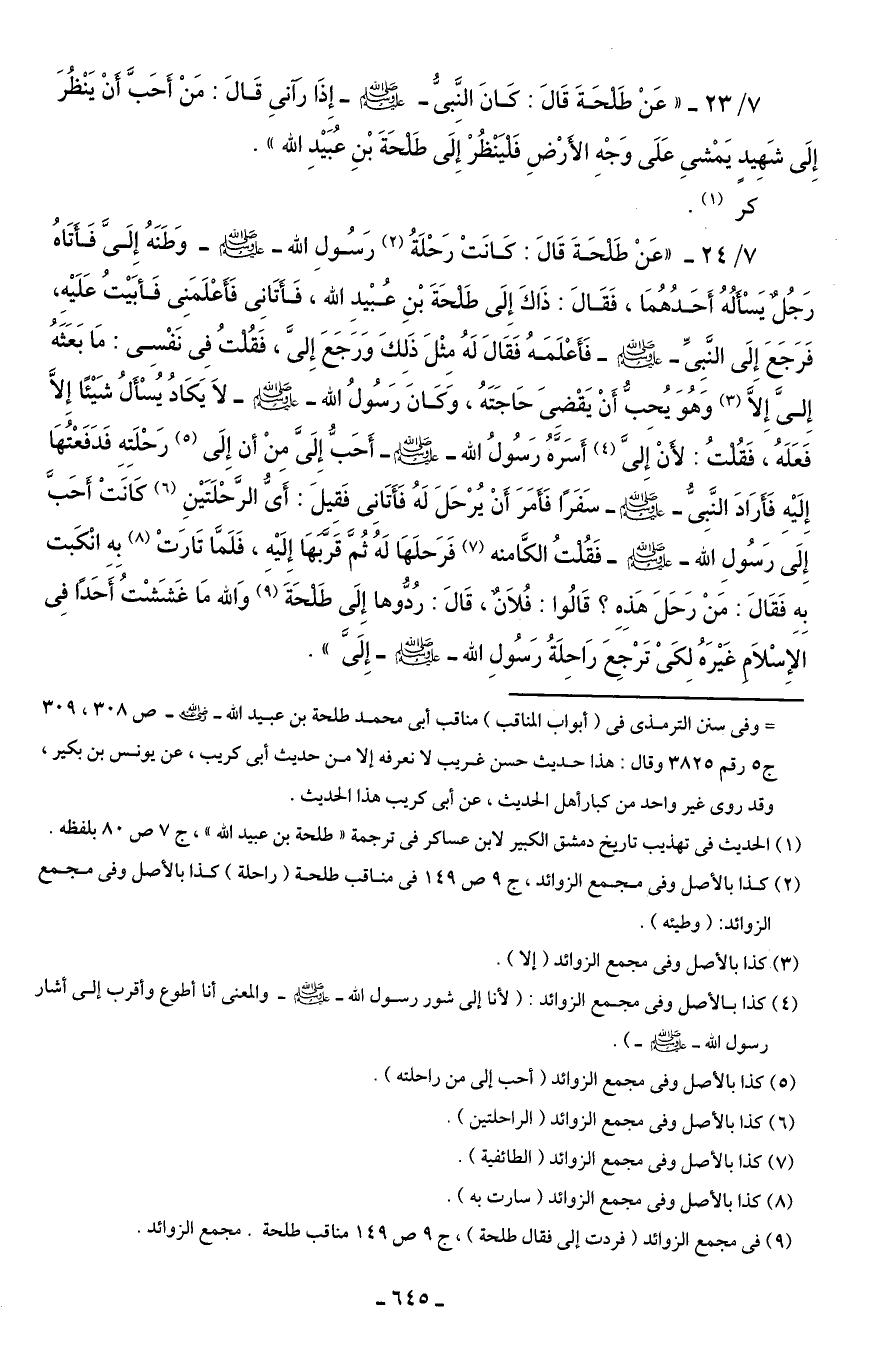 ٢٣/٧ - « عَنْ طَلْحَةَ قَالَ : كَانَ النَّبِىُّ - ﷺ - إِذَا رَآنِى قَالَ : مَنْ أَحَبَّ أَنْ يَنْظُرَ
إِلَى شَهِيدٍ يَمْشِى عَلَى وَجْهِ الأَرْضِ فَلْيَنْظُرْ إِلَى طَلْحَةَ بْنِ عُبَيْدِ الله » .
كر (١) .
٢٤/٧ - «عَنْ طَلْحَةَ قَالَ : كَانَتْ رَحْلَةُ (٢) رَسُولِ الله - ﷺ - وَطَنَهُ إِلَىَّ فَأَتَاهُ
رَجُلٌ يَسْأَلُهُ أَحَدُهُمَا ، فَقَالَ : ذَاكَ إِلَى طَلْحَةَ بْنِ عُبَيْدِ الله ، فَأَتَانِى فَأَعْلَمَنِى فَأَبَيْتُ عَلَيْهِ،
فَرَجَعَ إِلَى النَّبِىِّ - ﷺ - فَأَعْلَمَهُ فَقَالَ لَهُ مِثْلَ ذَلِكَ وَرَجَعَ إِلىَّ ، فَقُلْتُ فِى نَفْسِى : مَا بَعَثَهُ
إِلىَّ إِلاَّ (٣) وَهُوَ يُحِبُّ أَنْ يَقْضِىَ حَاجَتَهُ ، وَكَانَ رَسُولُ الله - ﷺ - لاَ يَكَادُ يُسْأَلُ شَيْئًا إِلاَّ
فَعَلَهُ ، فَقُلْتُ : لأَنْ إِلىَّ (٤) أَسَرَّهُ رَسُولُ الله - ﷺ - أَحَبُّ إِلَىَّ مِنْ أن إِلَى (٥) رَحْلَتِهِ فَدَفَعْتُهَا
إِلَيْهِ فَأَرَادَ النَّبِىُّ - ﷺ - سَفَرًا فَأَمَرَ أَنْ يُرْحَلَ لَهُ فَأَتَانِى فَقِيلَ : أَىُّ الرَّحْلَتَيْنِ (٦) كَانَتْ أَحَبَّ
إِلَى رَسُولِ الله - ﷺ - فَقُلْتُ الكَّامنه (٧) فَرَحلَهَا لَهُ ثُمَّ قَرَّبَهَا إِلَيْهِ ، فَلَمَّا ثَارَتْ (٨) بِهِ انْكَبت
بِهِ فَقَالَ : مَنْ رَحَلَ هَذِهِ ؟ قَالُوا : فُلاَنٌ ، قَالَ : رُدُّوها إِلَى طَلْحَةَ (٩) وَالله مَا غَشَشْتُ أَحَدًا فِى
الإِسْلاَمِ غَيْرَهُ لِكَىْ تَرْجِعَ رَاحِلَةُ رَسُولِ الله - ﷺ - إِلَىَّ » .
= وفى سنن الترمذى فى ( أبواب المناقب ) مناقب أبى محمد طلحة بن عبيد الله - رضي الله عنه - ص ٣٠٨ ، ٣٠٩
ج٥ رقم ٣٨٢٥ وقال : هذا حديث حسن غريب لا نعرفه إلا من حديث أبى كريب ، عن يونس بن بكير ،
وقد روى غير واحد من كبارأهل الحديث ، عن أبى كريب هذا الحديث .
(١) الحديث فى تهذيب تاريخ دمشق الكبير لابن عساكر فى ترجمة « طلحة بن عبيد الله » ، ج ٧ ص ٨٠ بلفظه .
(٢) كذا بالأصل وفى مجمع الزوائد ، ج ٩ ص ١٤٩ فى مناقب طلحة ( راحلة ) كذا بالأصل وفى مجمع
الزوائد: ( وطيئه ) .
(٣) كذا بالأصل وفى مجمع الزوائد ( إلا ) .
(٤) كذا بالأصل وفى مجمع الزوائد : ( لأنا إلى شور رسول الله - ﷺ - والمعنى أنا أطوع وأقرب إلى أشار
رسول الله - ﷺ - ) .
(٥) كذا بالأصل وفى مجمع الزوائد ( أحب إلى من راحلته ) .
(٦) كذا بالأصل وفى مجمع الزوائد ( الراحلتين ) .
(٧) كذا بالأصل وفى مجمع الزوائد ( الطائفية ) .
(٨) كذا بالأصل وفى مجمع الزوائد ( سارت به ) .
(٩) فى مجمع الزوائد ( فردت إلى فقال طلحة ) ، ج ٩ ص ١٤٩ مناقب طلحة . مجمع الزوائد .
- ٦٤٥ -